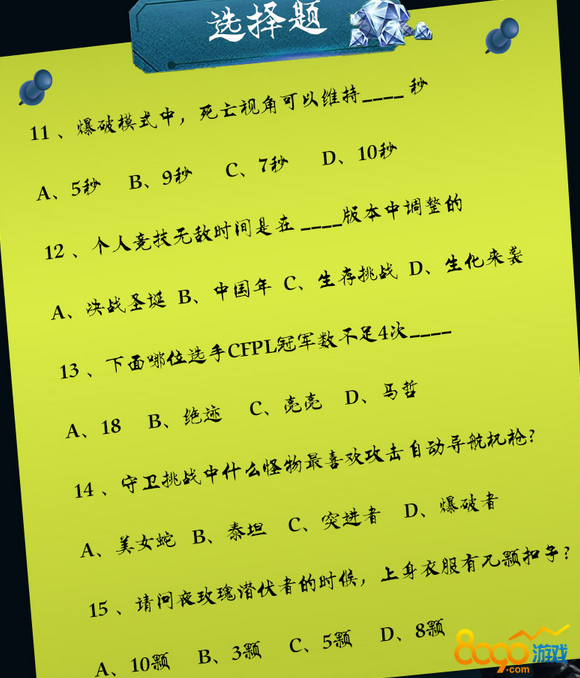 选择题
11、爆破模式中，死亡视角可以维持____ 秒
A、5秒 B、9秒 C、7秒 D、10秒
12、个人竞技无敌时间是在 ____版本中调整的
A、决战圣诞 B、中国年 C、生存挑战 D、生化来袭
13、下面哪位选手CFPL冠军数不足4次____
A、18 B、绝迹 C、亮亮 D、马哲
14、守卫挑战中什么怪物最喜欢攻击自动导航机枪?
A、美女蛇 B、泰坦 C、突进者 D、爆破者
15、请问夜玫瑰潜伏者的时候，上身衣服有几颗扣子?
A、10颗 B、3颗 C、5颗 D、8颗
8090游戏